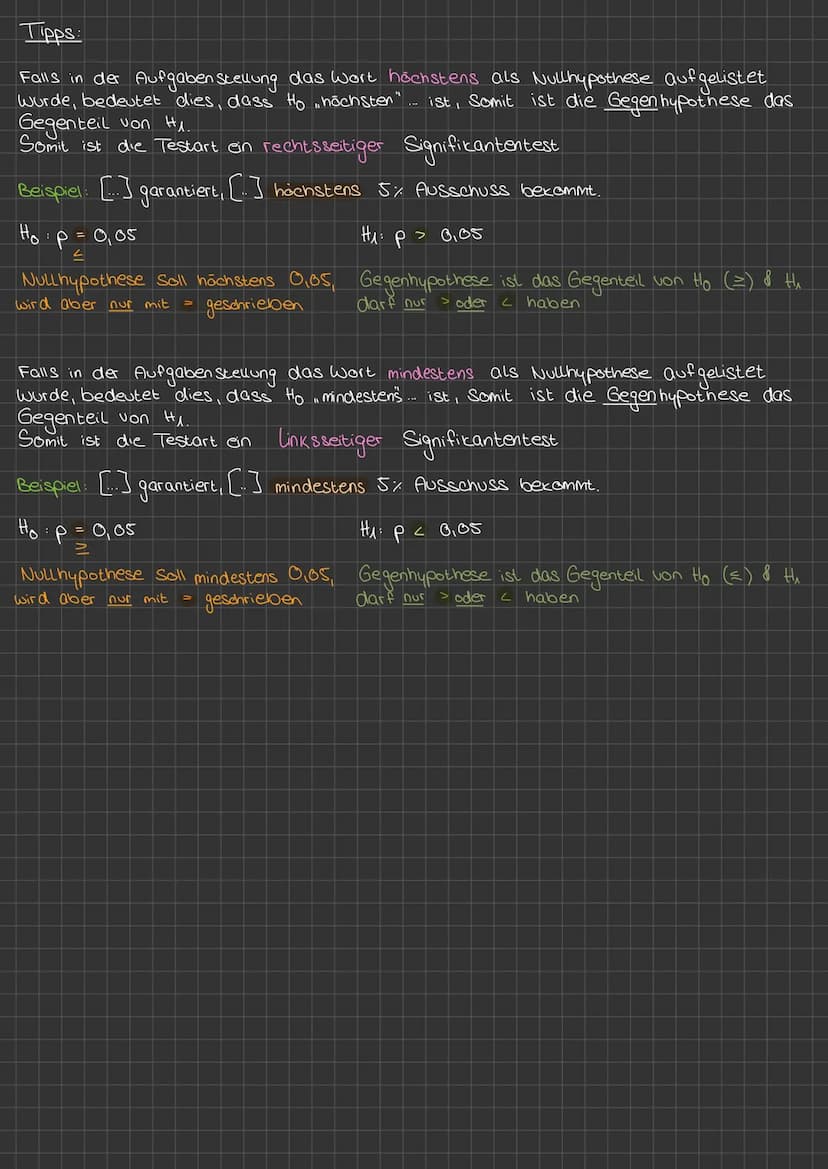 Tipps:
Falls in der Aufgabenstellung das Wort höchstens als Nullhypothese aufgelistet
wurde, bedeutet dies, dass H₀ „höchsten" ... ist, somit ist die Gegenhypothese das
Gegenteil von H₁.
Somit ist die Testart ein rechtsseitiger Signifikantentest
Beispiel: [...] garantiert, [..] höchstens 5% Ausschuss bekommt.
H₀ : p = 0,05 H₁: p > 0,05
≤
Nullhypothese soll höchstens 0,05, Gegenhypothese ist das Gegenteil von H₀ (≥) & H₁
wird aber nur mit = geschrieben darf nur > oder < haben
Falls in der Aufgabenstellung das Wort mindestens als Nullhypothese aufgelistet
wurde, bedeutet dies, dass H₀ „mindestens" ... ist, somit ist die Gegenhypothese das
Gegenteil von H₁.
Somit ist die Testart ein linksseitiger Signifikantentest
Beispiel: [...] garantiert, [..] mindestens 5% Ausschuss bekommt.
H₀ : p = 0,05 H₁: p < 0,05
≥
Nullhypothese soll mindestens 0,05, Gegenhypothese ist das Gegenteil von H₀ (≤) & H₁
wird aber nur mit = geschrieben darf nur > oder < haben